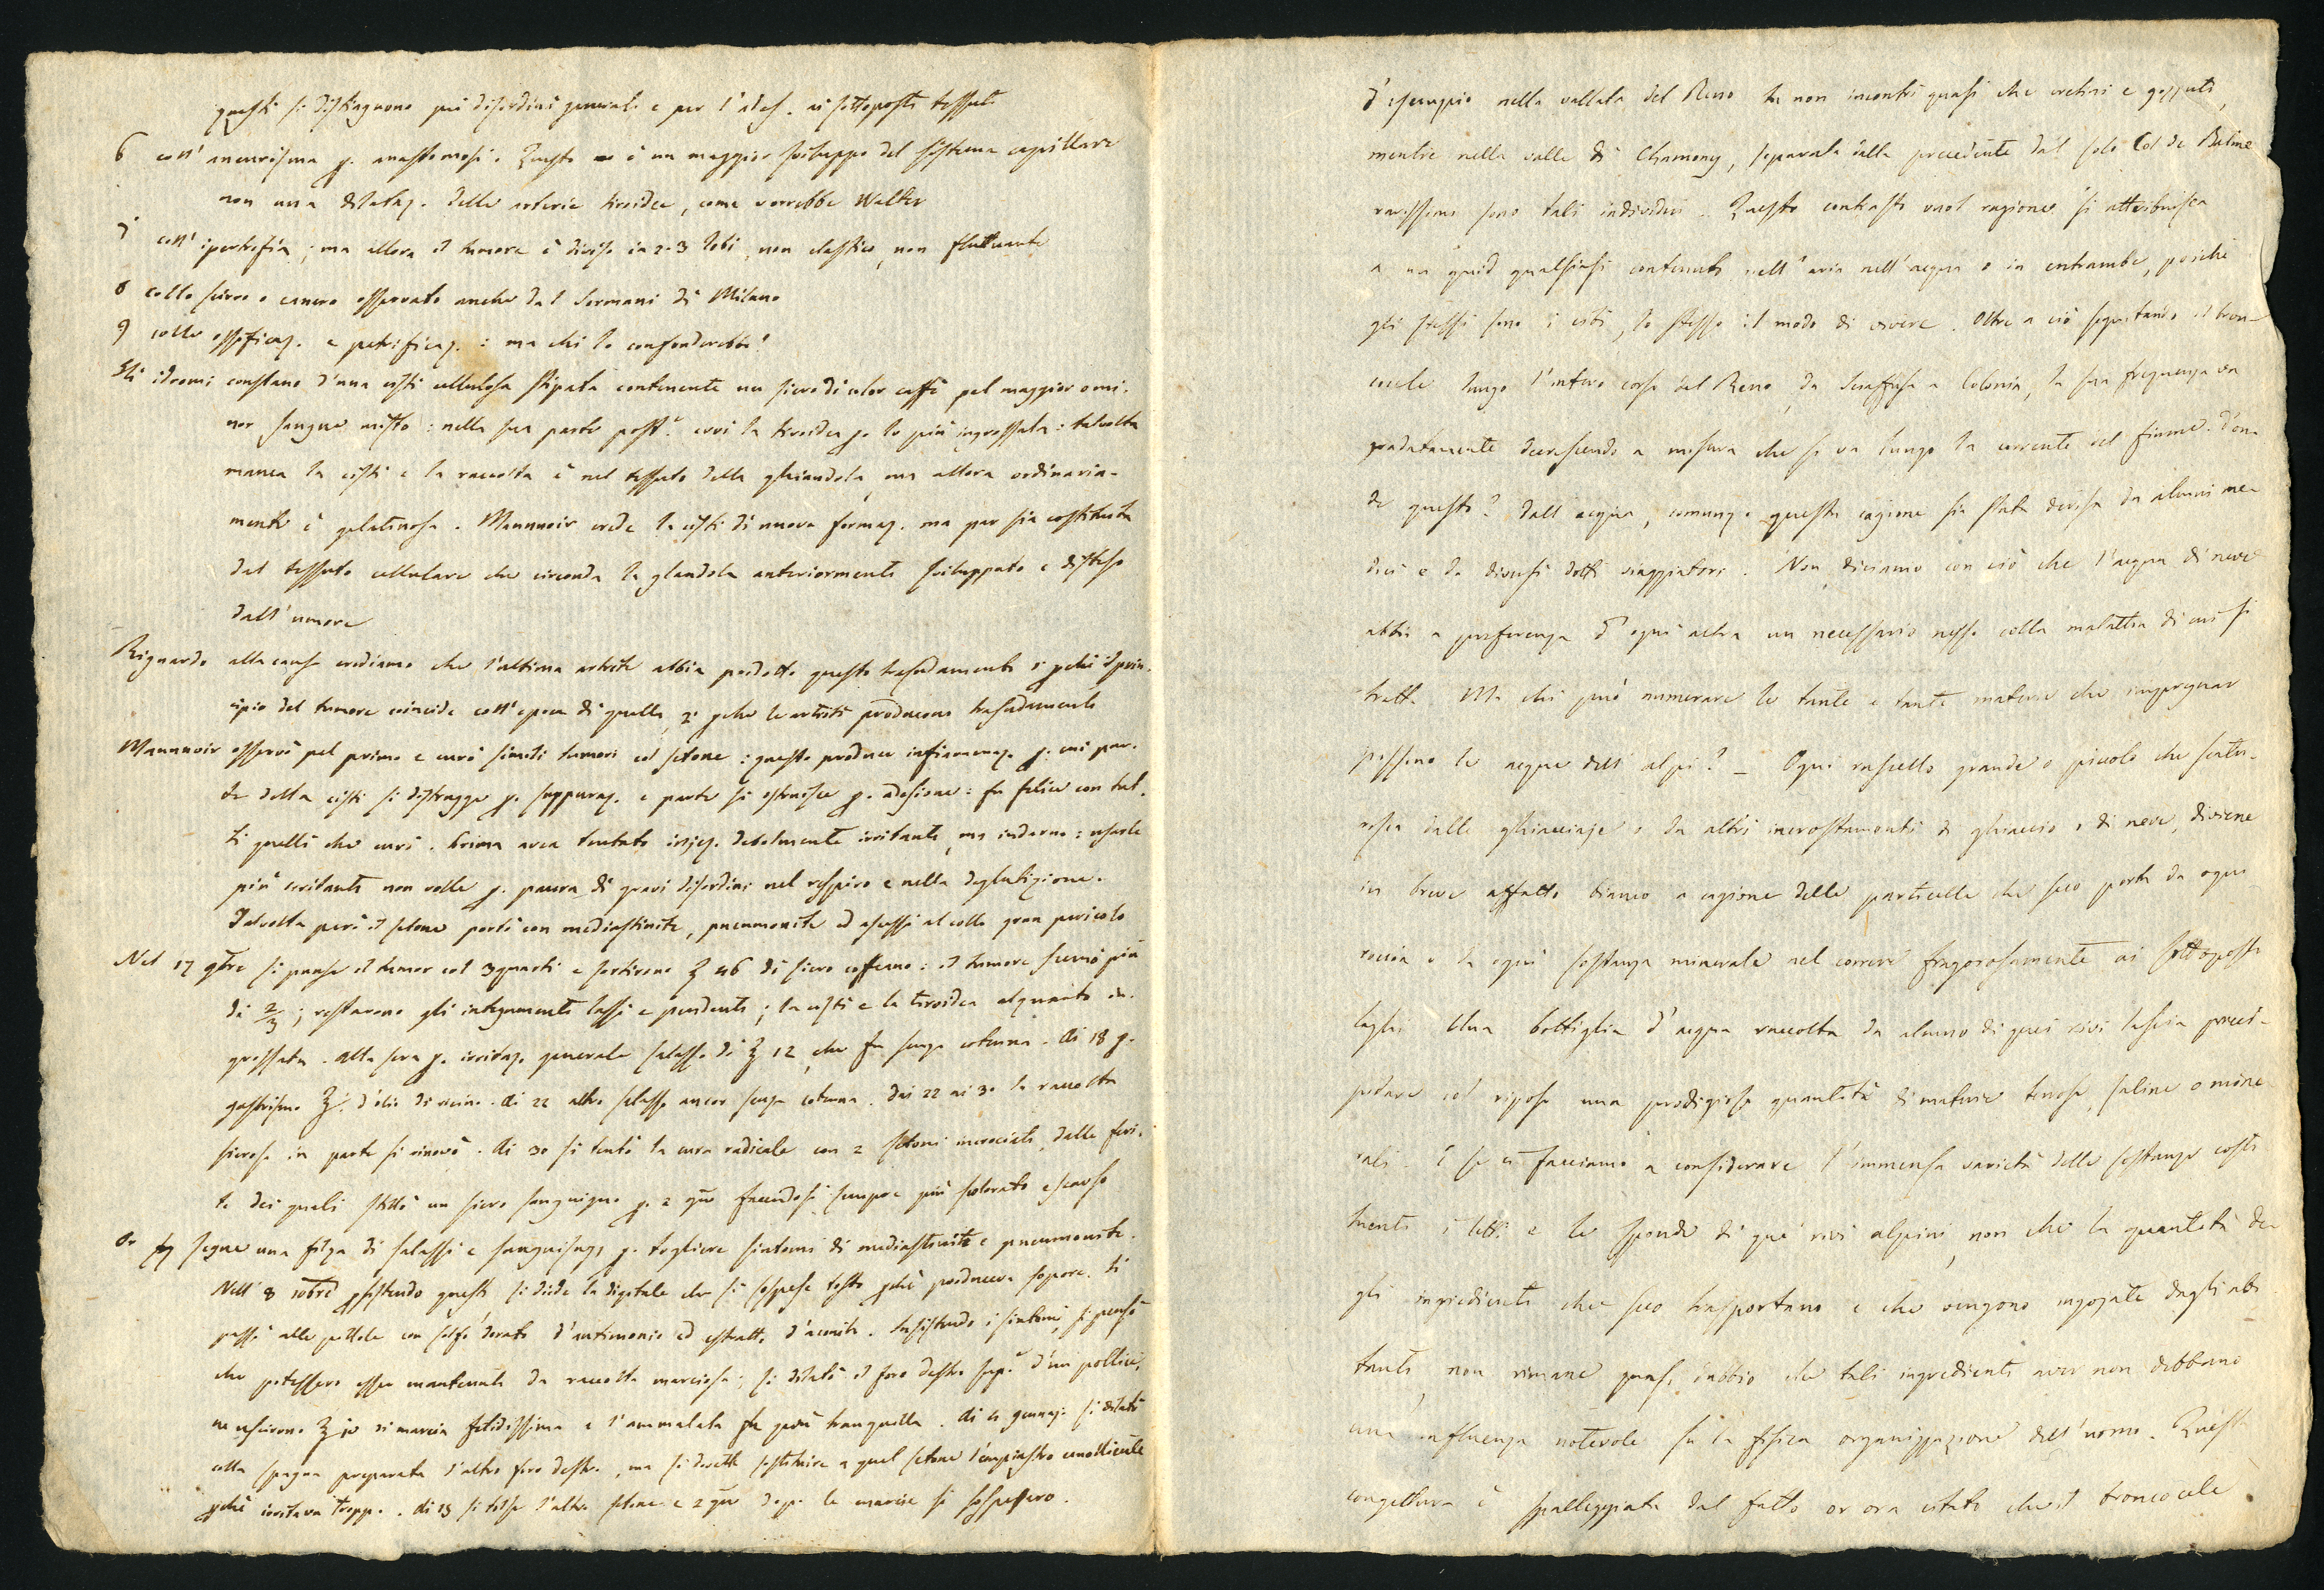 questi si distinguono pei disordini generali e per l'ades. ai sottoposti tessuti
6 coll' aneurisma p. anastomosi. Questo è un maggior sviluppo del sistema capillare
non una dilataz. delle arterie tiroidee, come vorrebbe Walter
7 coll' ipertrofia; ma allora il tumore è diviso in 2-3 lobi, non elastico, non fluttuante
8 collo scirro o cancro osservato anche dal Sormani di Milano
9 colle ossificaz. e petrificaz.: ma chi lo confonderebbe?
Gli idromi constano d'una cisti cellulosa stipata contenente un siero di color caffè pel maggior o mi-
nor sangue misto: nella sua parte post.e evvi la tiroidea p. lo più ingrossata: talvolta
manca la cisti e la raccolta è nel tessuto della ghiandola, ma allora ordinaria-
mente è gelatinosa. Maunoir crede la cisti di nuova formaz. ma par sia costituita
dal tessuto cellulare che circonda la glandola anteriormente sviluppato e disteso
dall'umore
Riguardo alla causa crediamo che l'ultima artrite abbia prodotto questo trasudamento 1° pchè il prin-
cipio del tumore coincide coll'epoca di quella, 2° pche le artriti producono trasudamento
Maunoir osservò pel primo e curò simili tumori col setone: questo produce infiammaz. p. cui par-
te della cisti si distrugge p. suppuraz. e parte si ostruisce p. adesione: fu felice con tut-
ti quelli che curò. Prima avea tentato iniez. debolmente irritanti, ma indarno: usarle
più irritanti non volle p. paura di gravi disordini nel respiro e nella deglutizione.
Talvolta però il setone portò con mediastinite, pneumonite ed ascessi al collo gran pericolo
Nel 17 9bre si punse il tumor col 3quarti e sortirono ℥ 46 di siero caffeano: il tumore scemò più
di 2/3; restarono gli integumenti lassi e pendenti; la cisti e la tiroidea alquanto in-
grossata. Alla sera p. irritaz. generale salasso di ℥ 12, che fu senza cotenna. Ai 18 p.
gastrismo ℥j d'olio di ricino. Ai 22 altro salasso ancor senza cotenna. Dai 22 ai 30 la raccolta
sierosa in parte si rinovò. Ai 30 si tentò la cura radicale con 2 setoni incrociati, dalle feri-
te dei quali stillò un siero sanguigno p. 2 gni facendosi sempre più scolorato e scarso
Or segue una filza di salassi e sanguisugj p. togliere sintomi di mediastinite e pneumonite.
Nell' 8 10bre psistendo questi si diede la digitale che si sospese tosto pchè produceva sopore. Si
passò alle pillole con solfo dorato d'antimonio ed estratto d'aconito. Insistendo i sintomi, si pensò
che potessero esser mantenuti da raccolta marciosa; si dilatò il foro destro sup.e d'un pollice,
ne uscirono ℥ di marcia fetidissima e l'ammalata fu più tranquilla. Ai 4 gennajo si dilatò
colla spugna preparata l'altro foro destro, ma si dovette sostituire a quel setone l'empiastro emolliente
pchè irritava troppo. Ai 13 si tolse l'altro setone e 2 gni dopo le marcie si sospesero.
d'esempio nella vallata del Reno tu non incontri quasi che cretini e gozzuti,
mentre nella valle di Chamony, separata dalla precedente dal solo Col de Balme
rarissimi sono tali individui. Questo contrasto vuol ragione si attribuisca
a un quid qualsiasi contenuto nell'aria nell'acqua o in entrambe, poichè
gli stessi sono i cibi, lo stesso il modo di vivere. Oltre a ciò seguitando il bron-
cocele lungo l'intero corso del Reno, da Sciaffusa a Colonia, la sua frequenza va
gradatamente decrescendo a misura che si va lungo la corrente del fiume. D'on-
de questo? dall'acqua, comunq. questa cagione sia stata derisa da alcuni me-
dici e da diversi dotti viaggiatori. Non diciamo con ciò che l'acqua di neve
abbia a preferenza d'ogni altra un necessario nesso colla malattia di cui si
tratta. Ma chi può numerare le tante e tante materie che impregnar
possono le acque dell'alpi? _ Ogni ruscello grande o piccolo che scatu-
risca dalle ghiacciaje o da altri incrostamenti di ghiaccio o di neve, diviene
in breve affatto bianco a cagione delle particelle che seco porta da ogni
roccia o da ogni sostanza minerale nel correre fragorosamente ai sottoposti
laghi. Una bottiglia d'acqua raccolta da alcuno di quei rivi lascia preci-
pitare col riposo una prodigiosa quantità di materie terrose, saline o mine-
rali. E se ci facciamo a considerare l'immensa varietà delle sostanze costi-
tuenti i letti e le sponde di que' rivi alpini, non che la quantità de-
gli ingredienti che seco trasportano e che vengono ingojate dagli abi-
tanti, non rimane quasi dubbio che tali ingredienti aver non debbano
una influenza notevole su la fisica organizzazione dell'uomo. Questa
congettura è spalleggiata dal fatto or ora citato che il broncocele